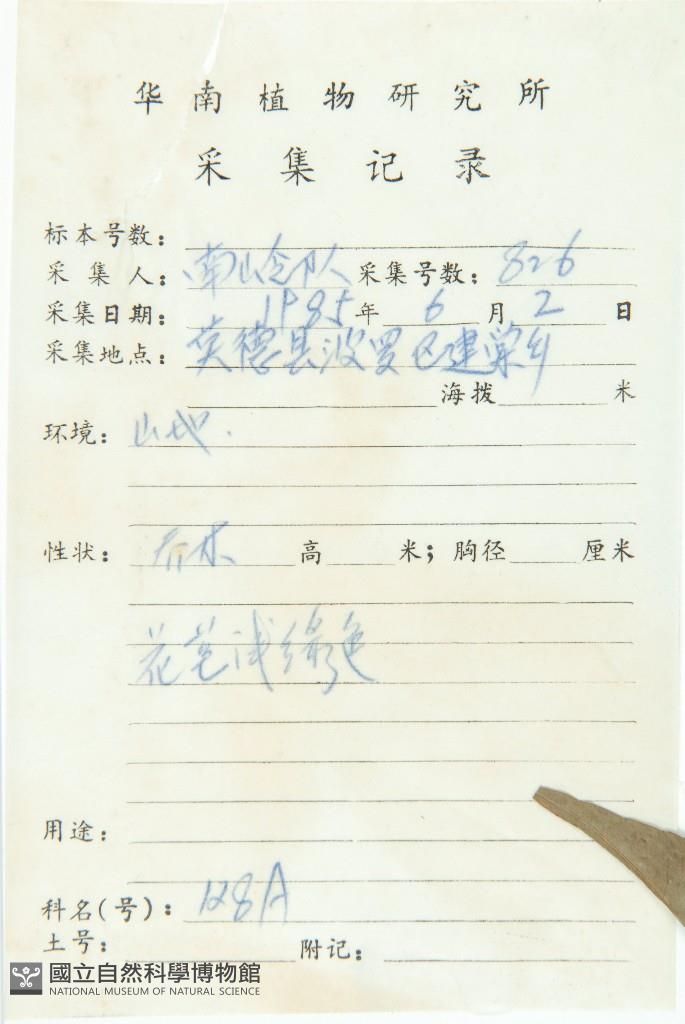 华南植物研究所
采集记录
标本号数:
采集人: 南岭念队 采集号数: 826
采集日期: 1985年 6 月 2 日
采集地点: 英德县波罗区建棠乡
海拨 米
环境: 山地.
性状: 乔木 高 米; 胸径 厘米
花苞浅绿色
用途:
科名(号): 128A
土号: 附记:
國立自然科學博物館
NATIONAL MUSEUM OF NATURAL SCIENCE